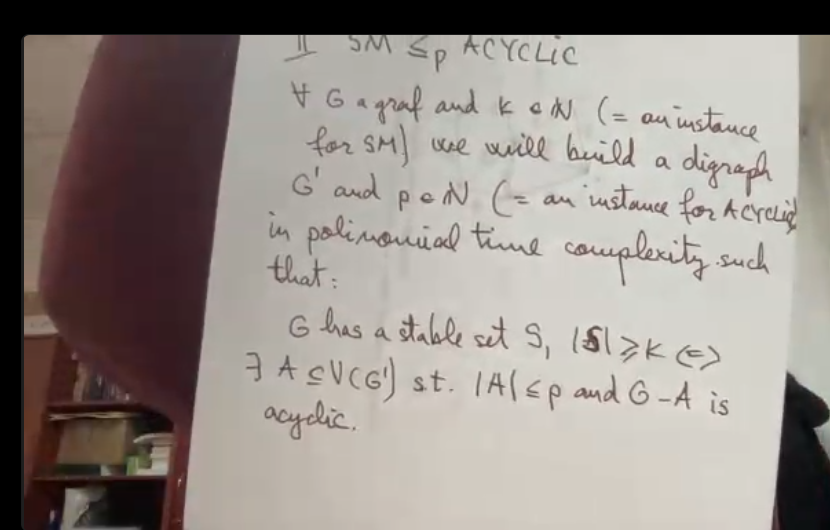 II SM ≤p ACYCLIC
∀ G a graf and k ∈ ℕ (= an instance
for SM) we will build a digraph
G' and p ∈ ℕ (= an instance for ACYCLIC)
in polinomial time complexity such
that:
G has a stable set S, |S| ⩾ k (=)
∃ A ⊆ V(G') s.t. |A| ≤ p and G - A is
acyclic.